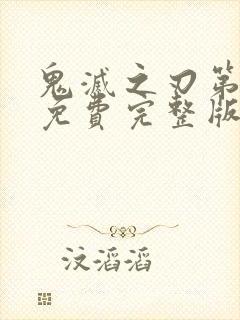 鬼滅之刃第
免費完整版
汶滔滔